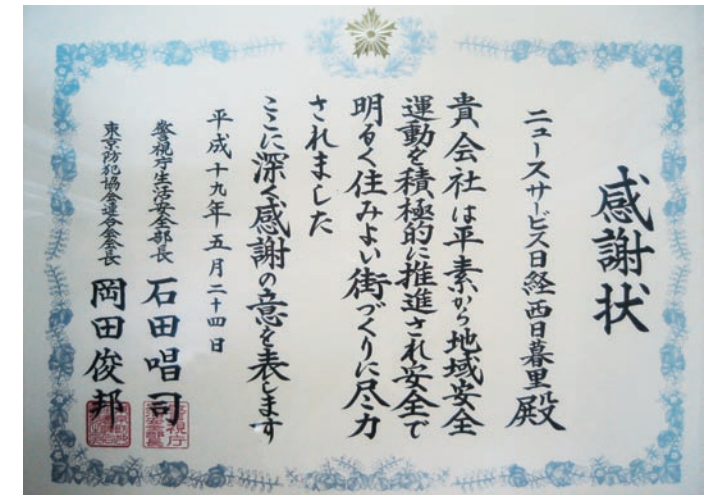 感謝状
ニュースサービス日経西日暮里殿
貴会社は平素から地域安全
運動を積極的に推進され安全で
明るく住みよい街づくりに尽力
されました
ここに深く感謝の意を表します
平成十九年五月二十四日
警視庁生活安全部長 石田唱司
東京防犯協会連合会会長 岡田俊邦